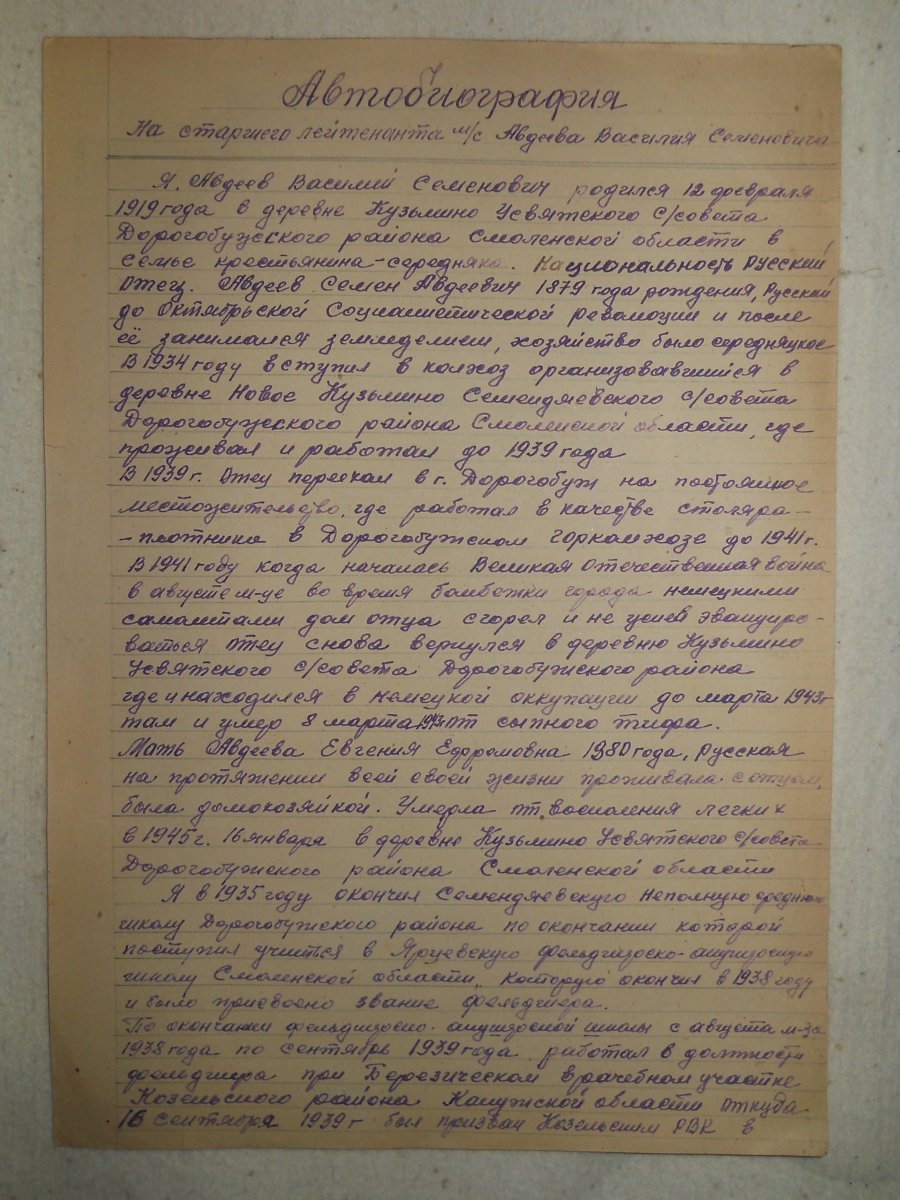 Автобиография
На старшего лейтенанта м/с Авдеева Василия Семеновича
Я, Авдеев Василий Семенович родился 12 февраля
1919 года в деревне Кузьмино Усвятского с/совета
Дорогобужского района Смоленской области в
семье крестьянина-середняка. Национальность Русский
Отец. Авдеев Семен Авдеевич 1879 года рождения, Русский
до Октябрьской Социалистической революции и после
её занимался земледелием, хозяйство было середняцкое
В 1934 году вступил в колхоз организовавшийся в
деревне Новое Кузьмино Семендяевского с/совета
Дорогобужского района Смоленской области, где
проживал и работал до 1939 года
В 1939 г. Отец переехал в г. Дорогобуж на постоянное
местожительство, где работал в качестве столяра-
-плотника в Дорогобужском горкомхозе до 1941 г.
В 1941 году когда началась Великая Отечественная война
в августе м-це во время бомбежки города немецкими
самолетами дом отца сгорел и не успев эвакуиро-
ваться Отец снова вернулся в деревню Кузьмино
Усвятского с/совета Дорогобужского района
где и находился в немецкой оккупации до марта 1943 г
там и умер 8 марта 1943 от сыпного тифа.
Мать Авдеева Евгения Ефромовна 1880 года, Русская
на протяжении всей своей жизни проживала с отцом,
была домохозяйкой. Умерла от воспаления легких
в 1945 г. 16 января в деревне Кузьмино Усвятского с/совета
Дорогобужского района Смоленской области
Я в 1935 году окончил Семендяевскую Неполную среднюю
школу Дорогобужского района по окончании которой
поступил учиться в Ярцевскую фельдшерско-акушерскую
школу Смоленской области, которую окончил в 1938 году
и было присвоено звание фельдшера.
По окончании фельдшерско-акушерской школы с августа м-ца
1938 года по сентябрь 1939 года работал в должности
фельдшера при Березическом врачебном участке
Козельского района Калужской области Откуда
16 сентября 1939 г был призван Козельским РВК в